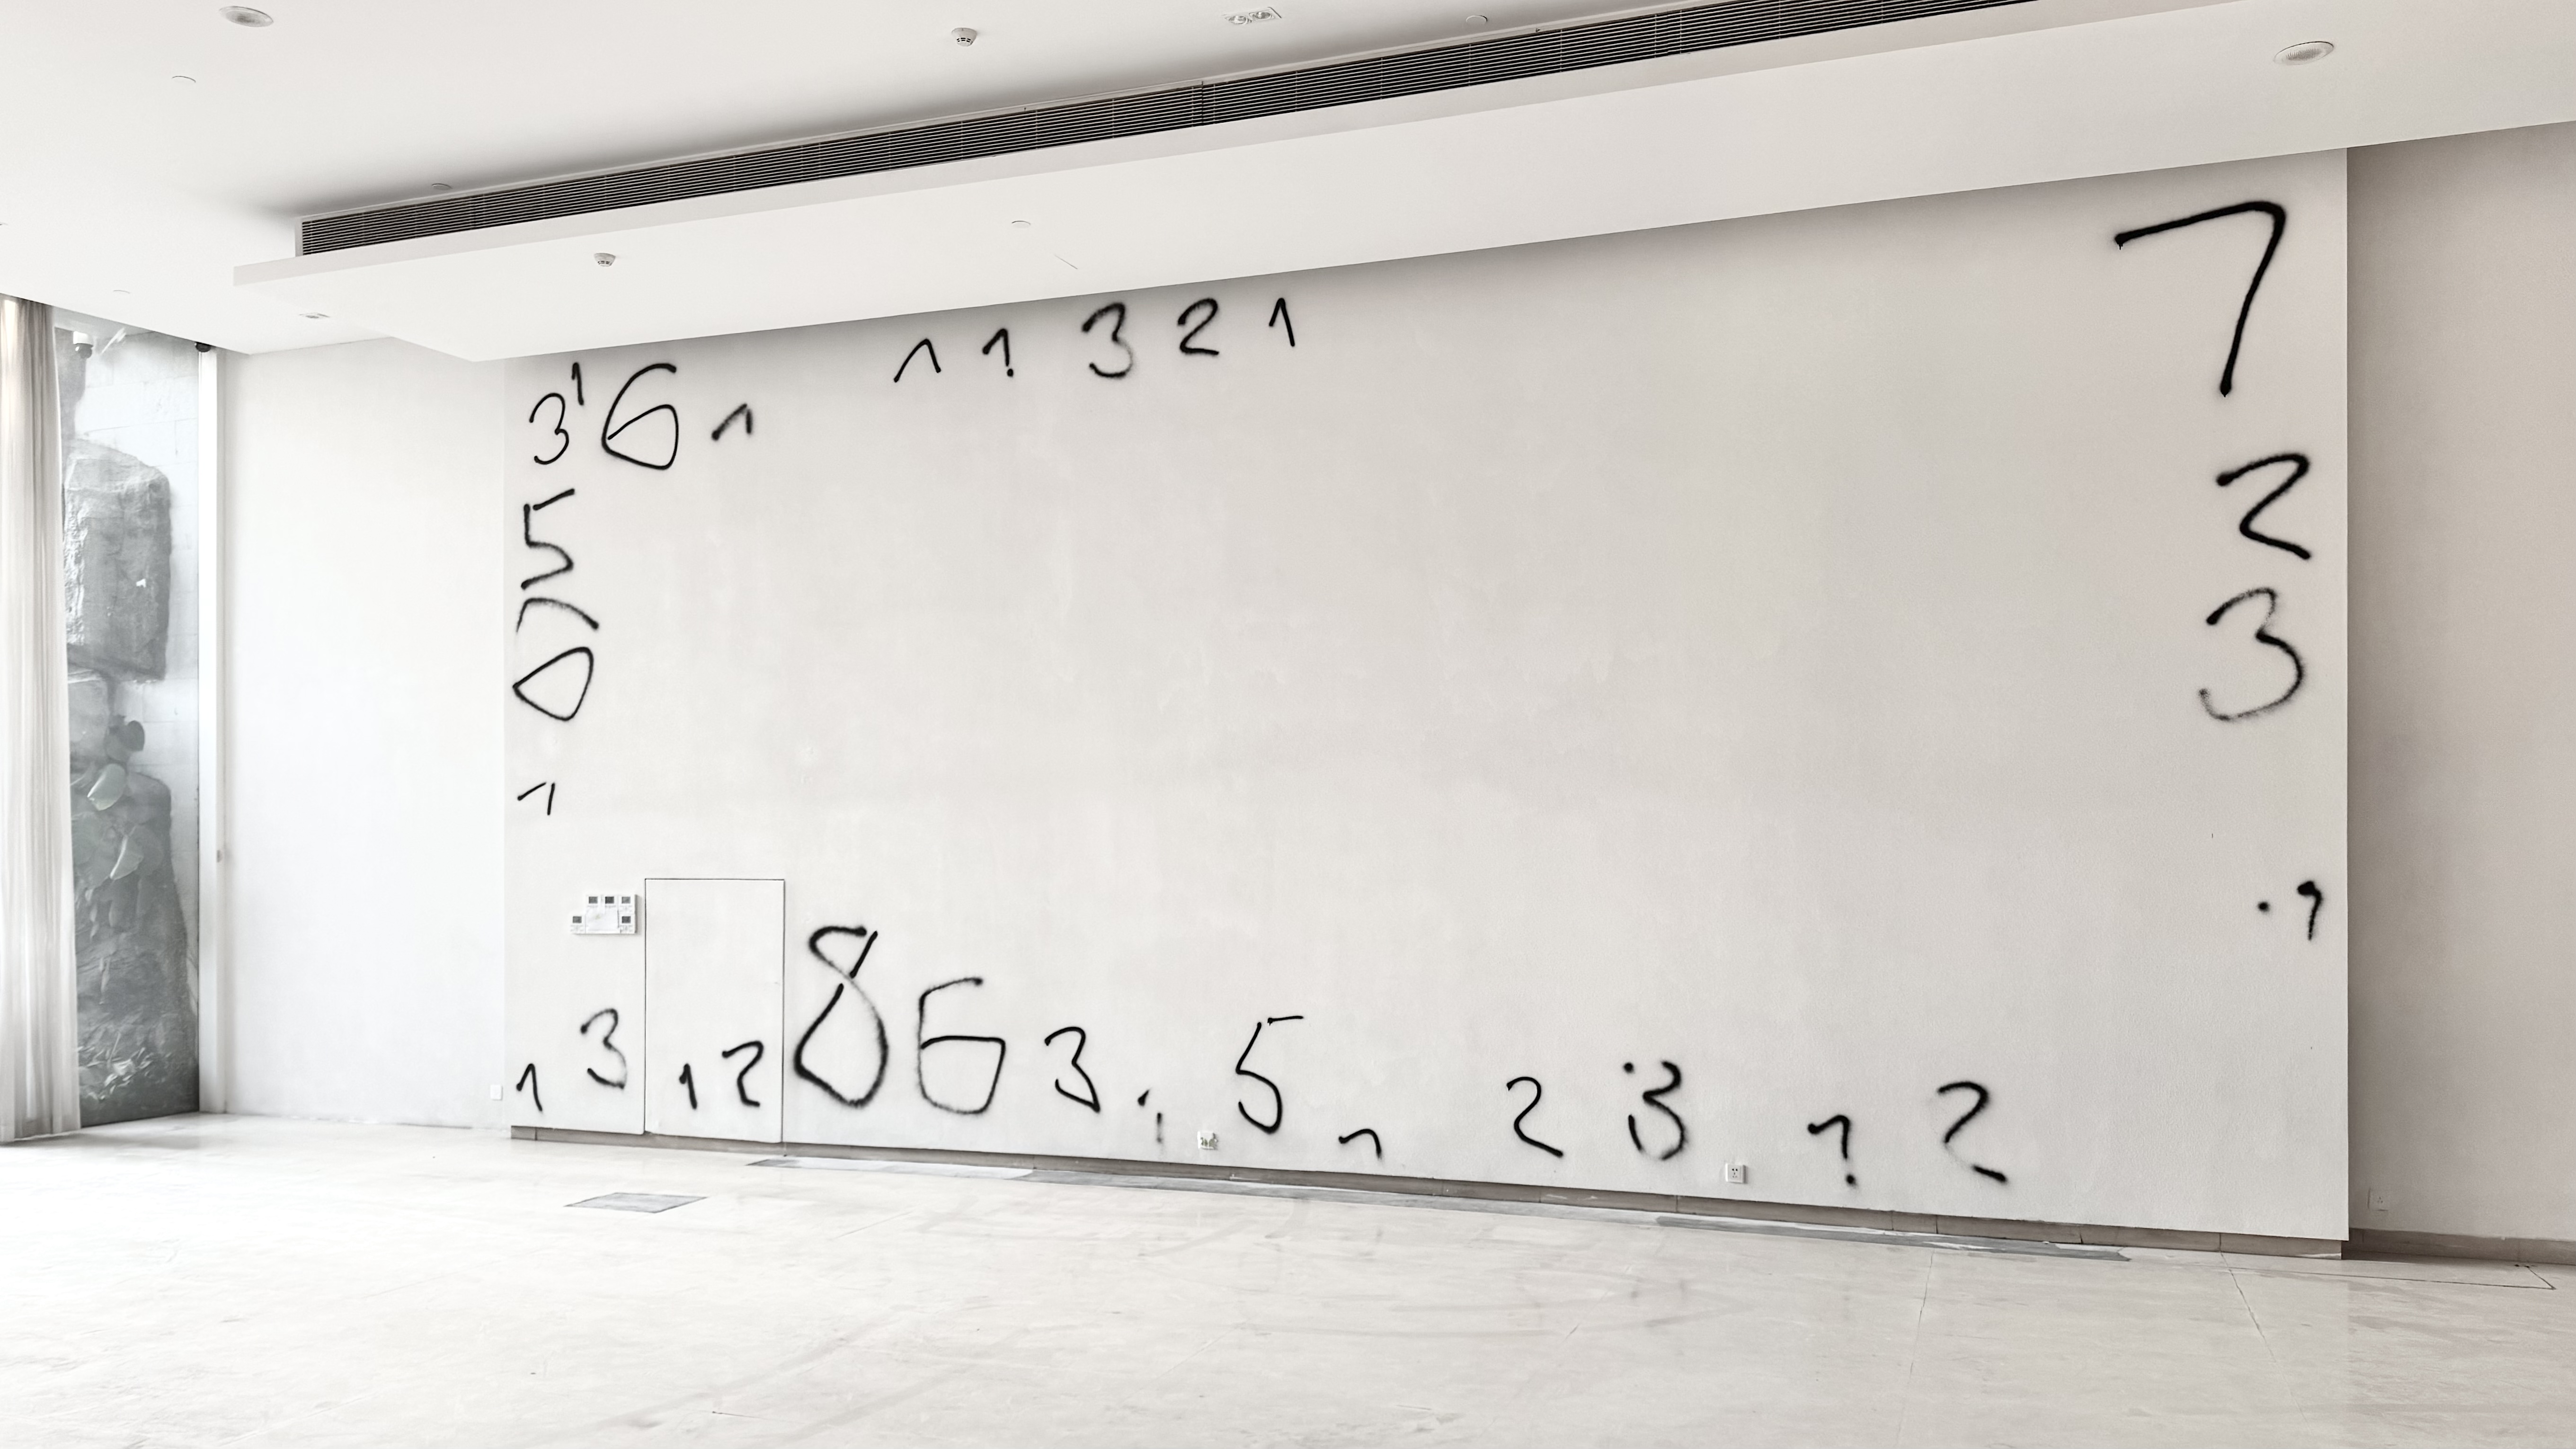 1 1 3 2 1
3 1 6 1
7
5
2
0
3
1
1
1 3 1 2 8 6 3 1 5 1 2 3 1 2